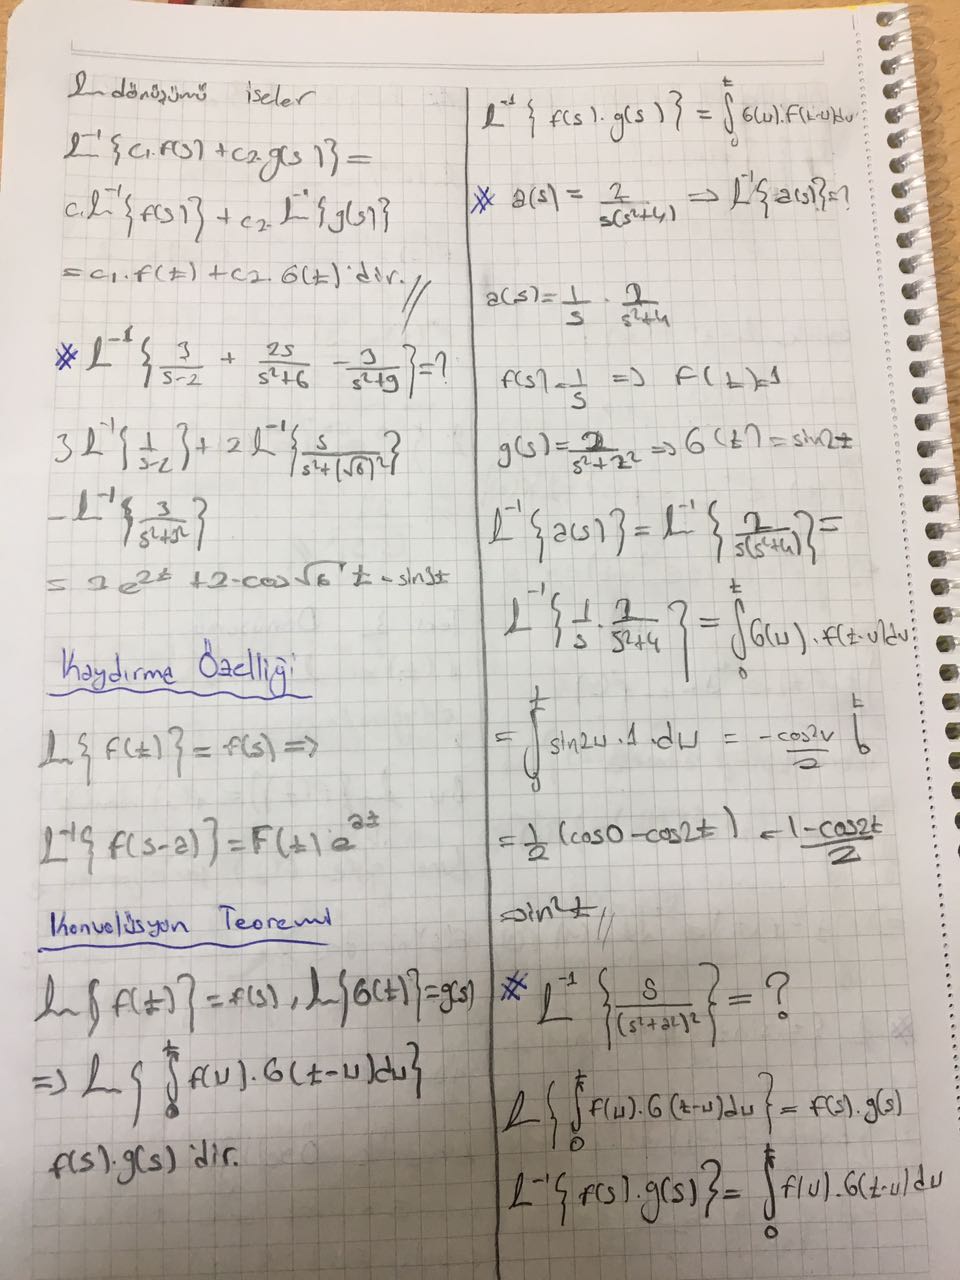 L dönüşümü iseler
L⁻¹{c₁.f(s)+c₂.g(s)}=
c₁L⁻¹{f(s)}+c₂.L⁻¹{g(s)}
=c₁.f(t)+c₂.G(t)'dir.//
* L⁻¹{3/(s-2) + 2s/(s²+6) - 3/(s²+9)}=?
3L⁻¹{1/(s-2)}+2L⁻¹{s/(s²+(√6)²)}
-L⁻¹{3/(s²+3²)}
= 3e^(2t) +2.cos√6 t - sin3t
Kaydırma Özelliği
L{f(t)}=f(s)=>
L⁻¹{f(s-a)}=F(t)e^(at)
Konvolüsyon Teoremi
L{f(t)}=f(s), L{G(t)}=g(s)
=> L{∫₀ᵗ f(u).G(t-u)du}
f(s).g(s)'dir.
L⁻¹{f(s).g(s)}=∫₀ᵗ G(u).F(t-u)du
* a(s)=2/(s(s²+4)) => L⁻¹{a(s)}=?
a(s)=1/s . 2/(s²+4)
f(s)=1/s => F(t)=1
g(s)=2/(s²+2²) => G(t)=sin2t
L⁻¹{a(s)}=L⁻¹{2/(s(s²+4))}=
L⁻¹{1/s . 2/(s²+4)}=∫₀ᵗ G(u).f(t-u)du
=∫₀ᵗ sin2u.1.du = -cos2u/2 |₀ᵗ
=1/2(cos0-cos2t)=(1-cos2t)/2
=sin²t//
* L⁻¹{s/(s²+a²)²}=?
L{∫₀ᵗ f(u).G(t-u)du}=f(s).g(s)
L⁻¹{f(s).g(s)}=∫₀ᵗ f(u).G(t-u)du